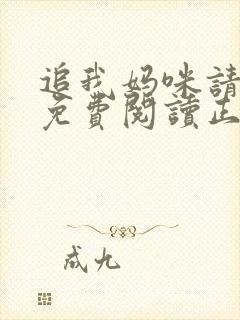 追我妈咪請
免費閱讀正
成九